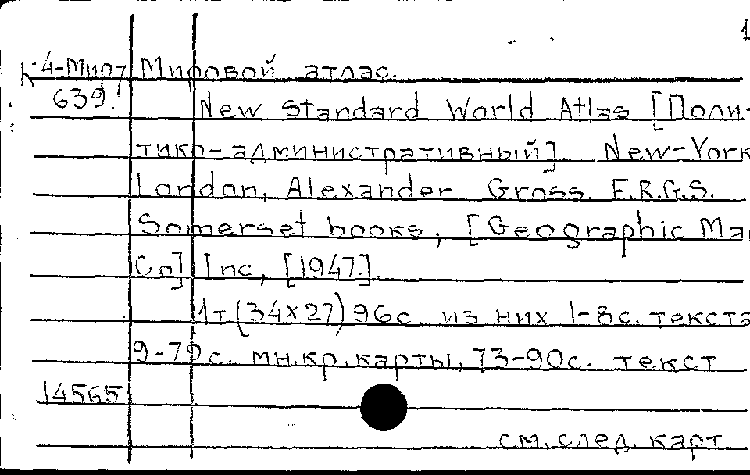 1
К-4-Мир, Мировой атлас.
639. New Standard World Atlas [Поли-
тико-административный]. New-York
London, Alexander Gross F.R.G.S.
Somerset books, [Geographic Map
Co] Inc, [1947].
1т(34x27) 96с. из них 1-8с. текста
9-72с. мн.кр.карты, 73-90с. текст
14565
см.след.карт